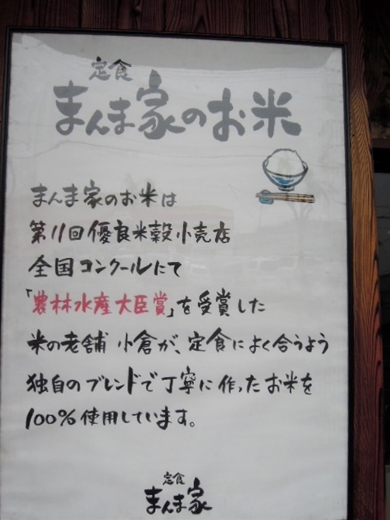 定食
まんま家のお米
まんま家のお米は
第11回優良米穀小売店
全国コンクールにて
「農林水産大臣賞」を受賞した
米の老舗 小倉が、定食によく合うよう
独自のブレンドで丁寧に作ったお米を
100%使用しています。
定食
まんま家